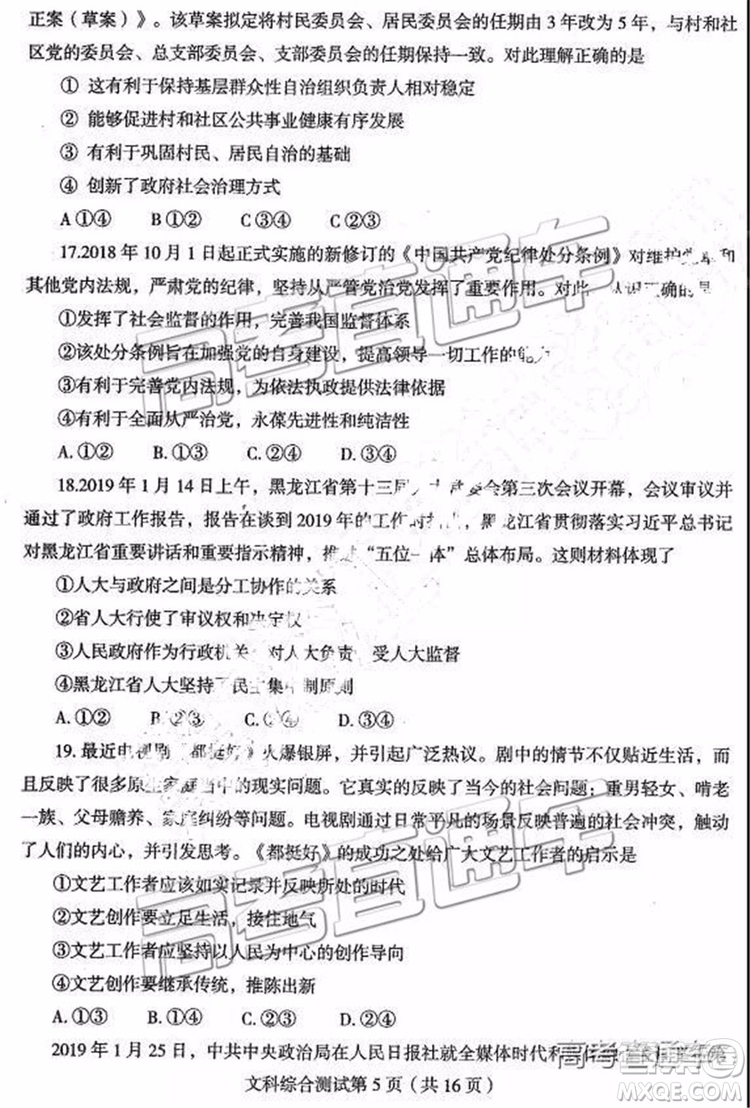 正案（草案）》。该草案拟定将村民委员会、居民委员会的任期由 3 年改为 5 年，与村和社
区党的委员会、总支部委员会、支部委员会的任期保持一致。对此理解正确的是
① 这有利于保持基层群众性自治组织负责人相对稳定
② 能够促进村和社区公共事业健康有序发展
③ 有利于巩固村民、居民自治的基础
④ 创新了政府社会治理方式
A ①④ B ①② C ③④ D ②③
17.2018 年 10 月 1 日起正式实施的新修订的《中国共产党纪律处分条例》对维护党章和
其他党内法规，严肃党的纪律，坚持从严管党治党发挥了重要作用。对此 认识正确的是
①发挥了社会监督的作用，完善我国监督体系
②该处分条例旨在加强党的自身建设，提高领导一切工作的能力
③有利于完善党内法规，为依法执政提供法律依据
④有利于全面从严治党，永葆先进性和纯洁性
A.①② B.①③ C.②④ D.③④
18.2019 年 1 月 14 日上午，黑龙江省第十三届人大常委会第三次会议开幕，会议审议并
通过了政府工作报告，报告在谈到 2019 年的工作时指出，黑龙江省贯彻落实习近平总书记
对黑龙江省重要讲话和重要指示精神，推进“五位一体”总体布局。这则材料体现了
①人大与政府之间是分工协作的关系
②省人大行使了审议权和决定权
③人民政府作为行政机关，对人大负责，受人大监督
④黑龙江省人大坚持了民主集中制原则
A.①② B.②③ C.①④ D.③④
19.最近电视剧《都挺好》火爆银屏，并引起广泛热议。剧中的情节不仅贴近生活，而
且反映了很多原生家庭当中的现实问题。它真实的反映了当今的社会问题；重男轻女、啃老
一族、父母赡养、家庭纠纷等问题。电视剧通过日常平凡的场景反映普遍的社会冲突，触动
了人们的内心，并引发思考。《都挺好》的成功之处给广大文艺工作者的启示是
①文艺工作者应该如实记录并反映所处的时代
②文艺创作要立足生活，接住地气
③文艺工作者应坚持以人民为中心的创作导向
④文艺创作要继承传统，推陈出新
A.①③ B.①② C.②③ D.②④
2019 年 1 月 25 日，中共中央政治局在人民日报社就全媒体时代和
文科综合测试第 5 页（共 16 页）
高考直通车
高考直通车
高考直通车
MXQE.COM